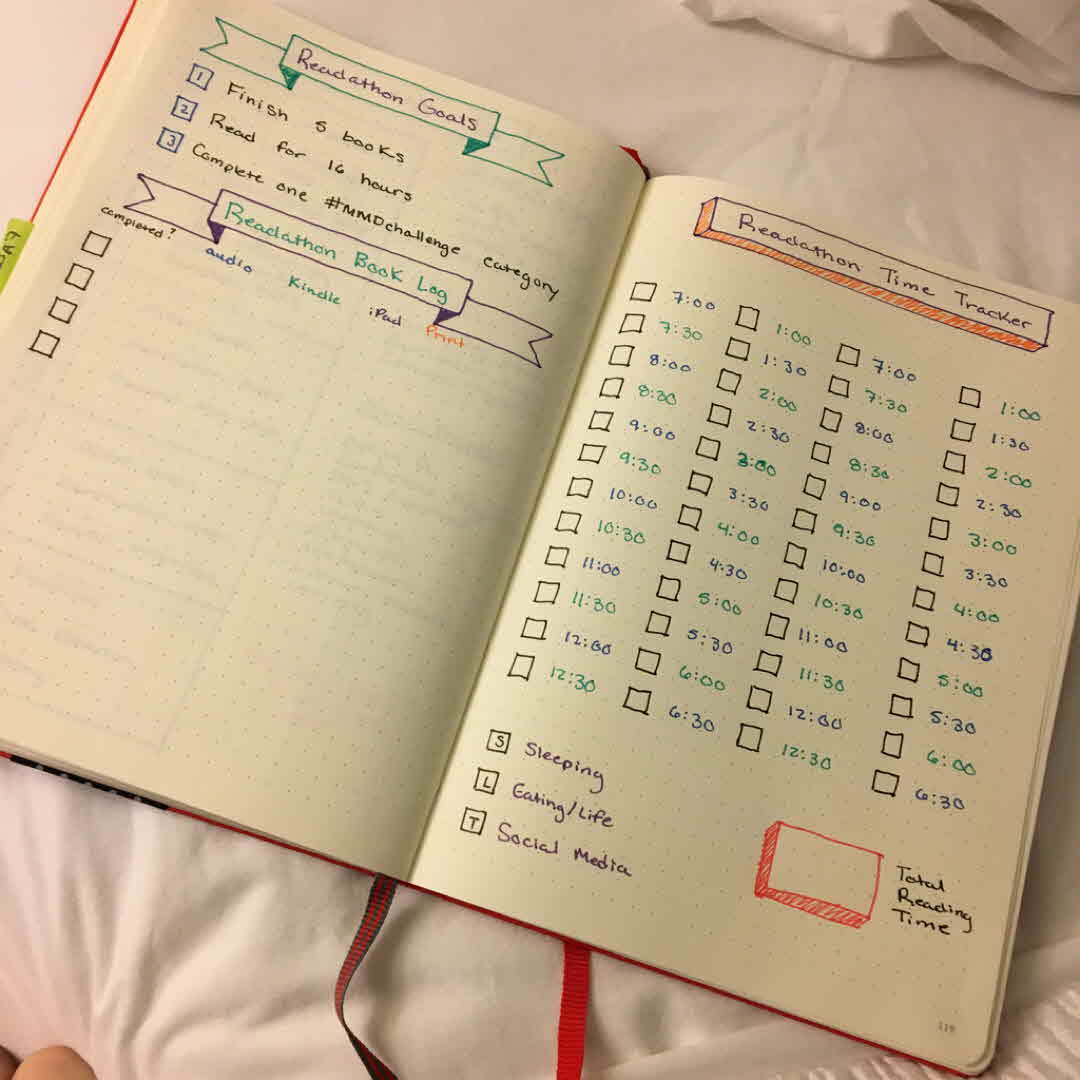 Readathon Goals
1 Finish 5 books
2 Read for 16 hours
3 Complete one #MMDchallenge category
Readathon Book Log
completed? audio Kindle iPad Print
Readathon Time Tracker
7:00
7:30
8:00
8:30
9:00
9:30
10:00
10:30
11:00
11:30
12:00
12:30
1:00
1:30
2:00
2:30
3:00
3:30
4:00
4:30
5:00
5:30
6:00
6:30
7:00
7:30
8:00
8:30
9:00
9:30
10:00
10:30
11:00
11:30
12:00
12:30
1:00
1:30
2:00
2:30
3:00
3:30
4:00
4:30
5:00
5:30
6:00
6:30
S Sleeping
L Eating/Life
T Social Media
Total
Reading
Time
119